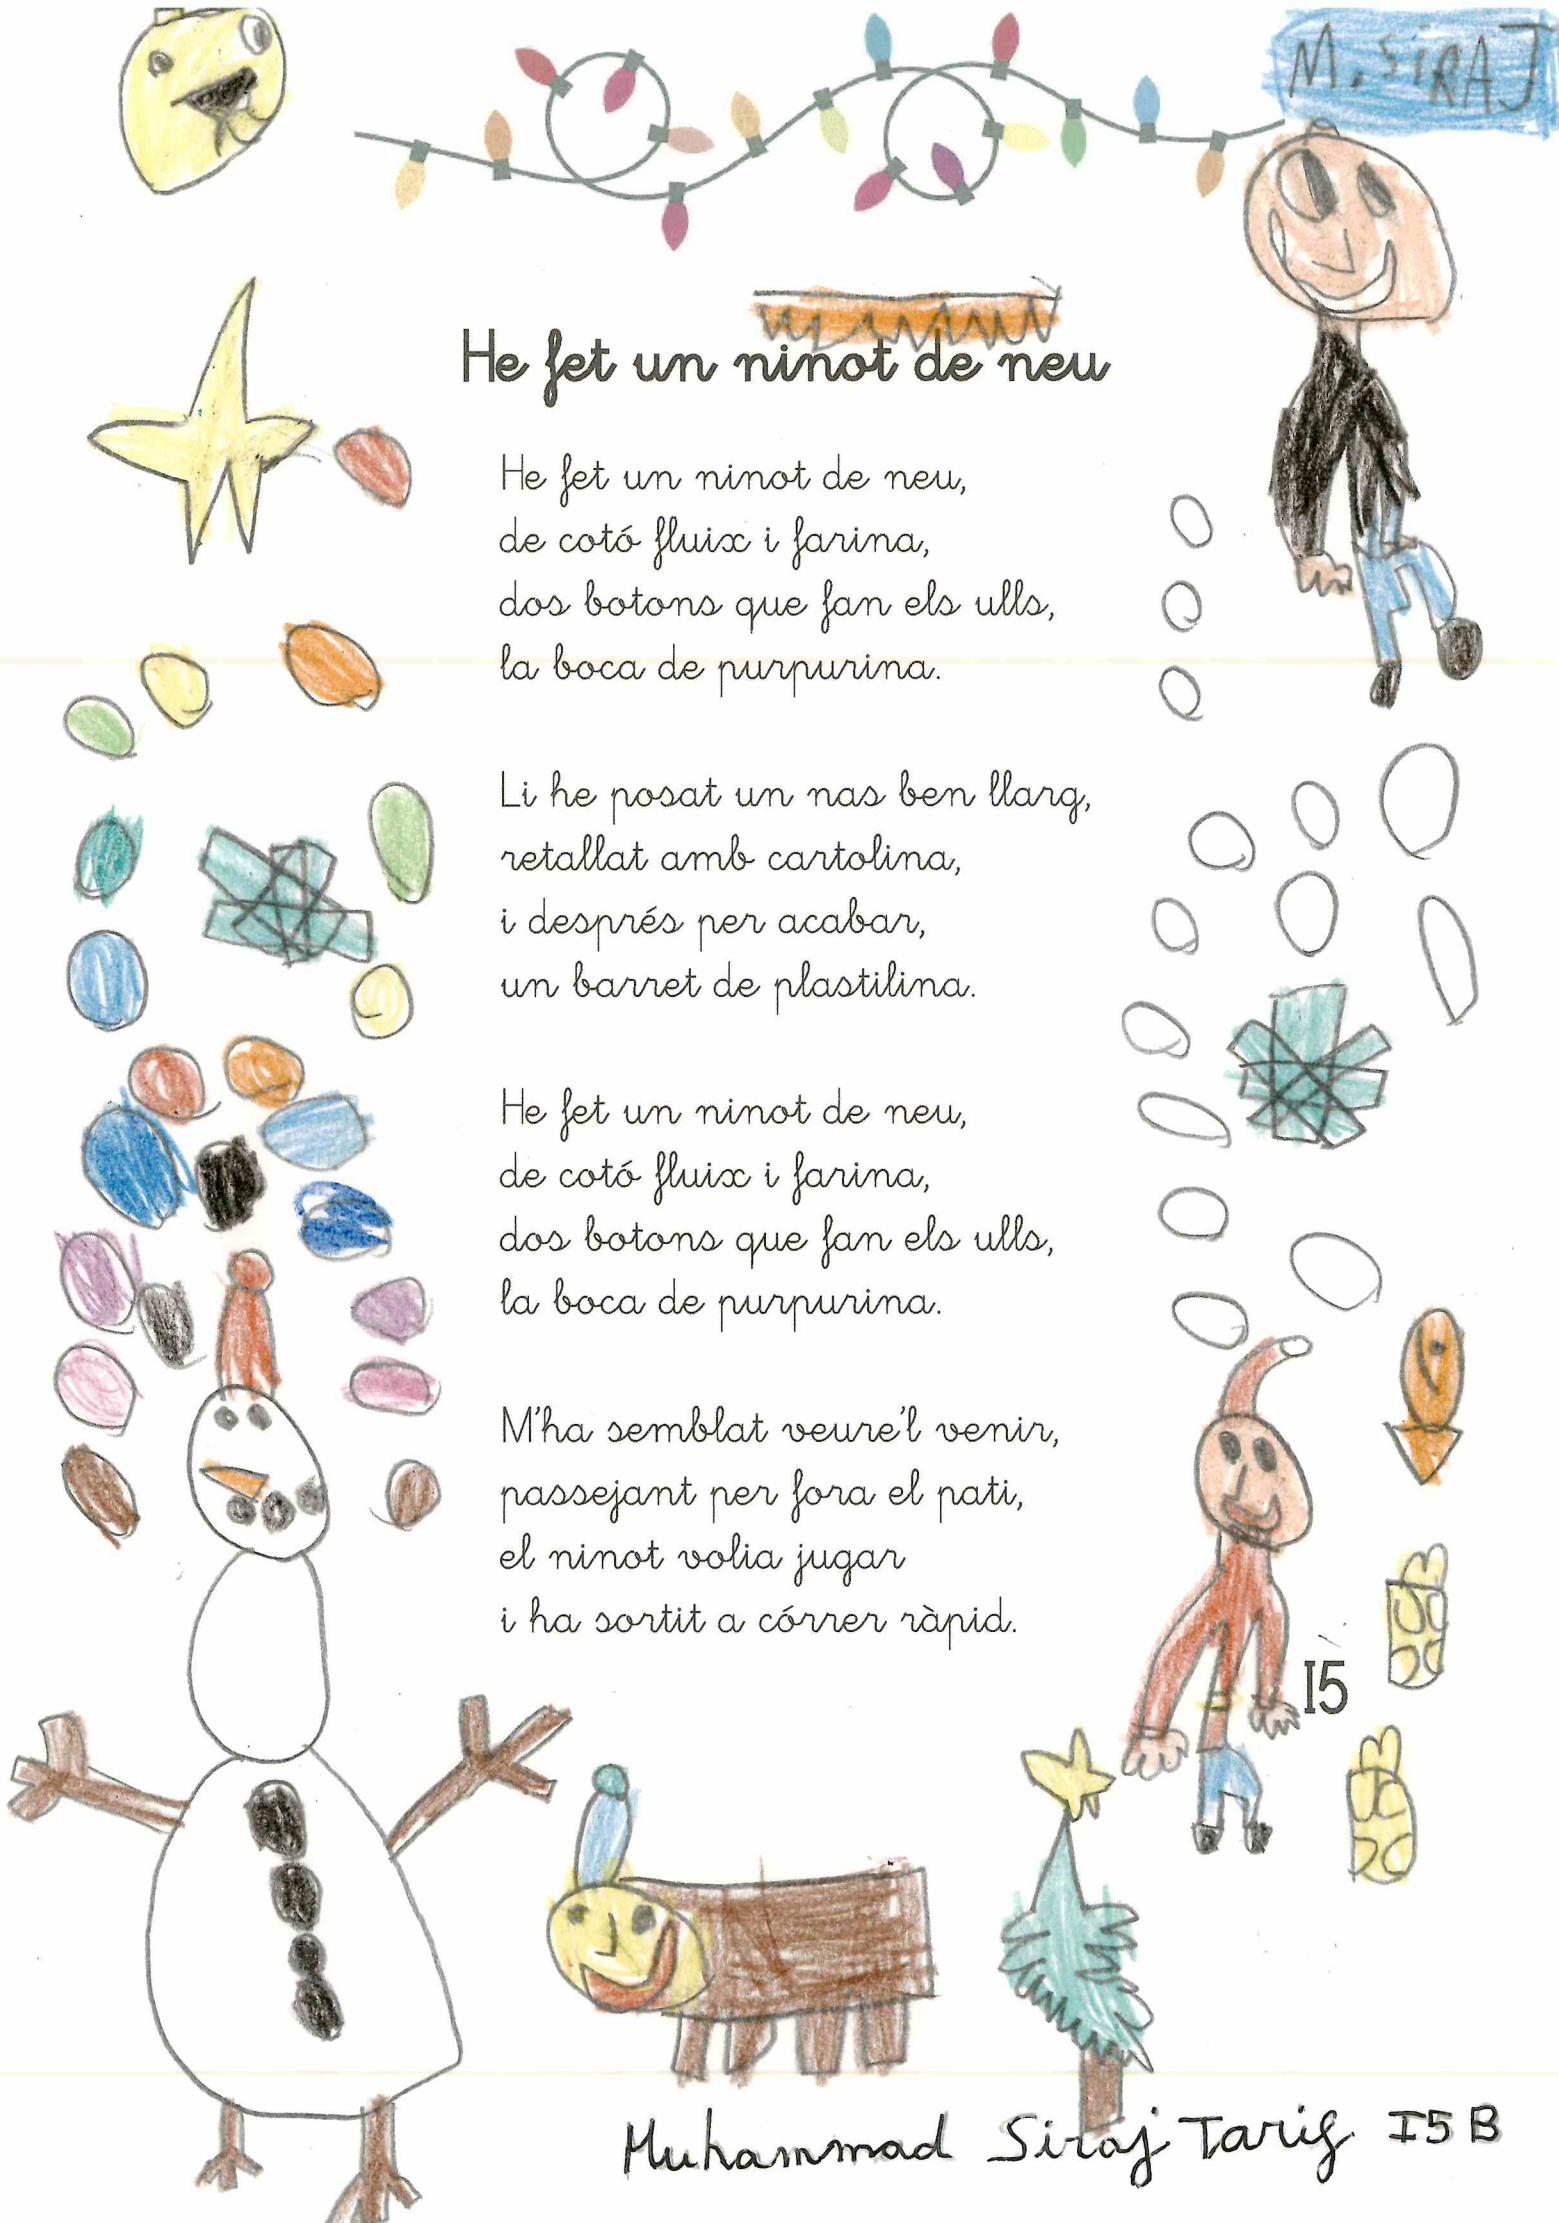 M. SiRAJ
He fet un ninot de neu
He fet un ninot de neu,
de cotó fluix i farina,
dos botons que fan els ulls,
la boca de purpurina.
Li he posat un nas ben llarg,
retallat amb cartolina,
i després per acabar,
un barret de plastilina.
He fet un ninot de neu,
de cotó fluix i farina,
dos botons que fan els ulls,
la boca de purpurina.
M'ha semblat veure'l venir,
passejant per fora el pati,
el ninot volia jugar
i ha sortit a córrer ràpid.
I5
Muhammad Siraj Tariq I5 B